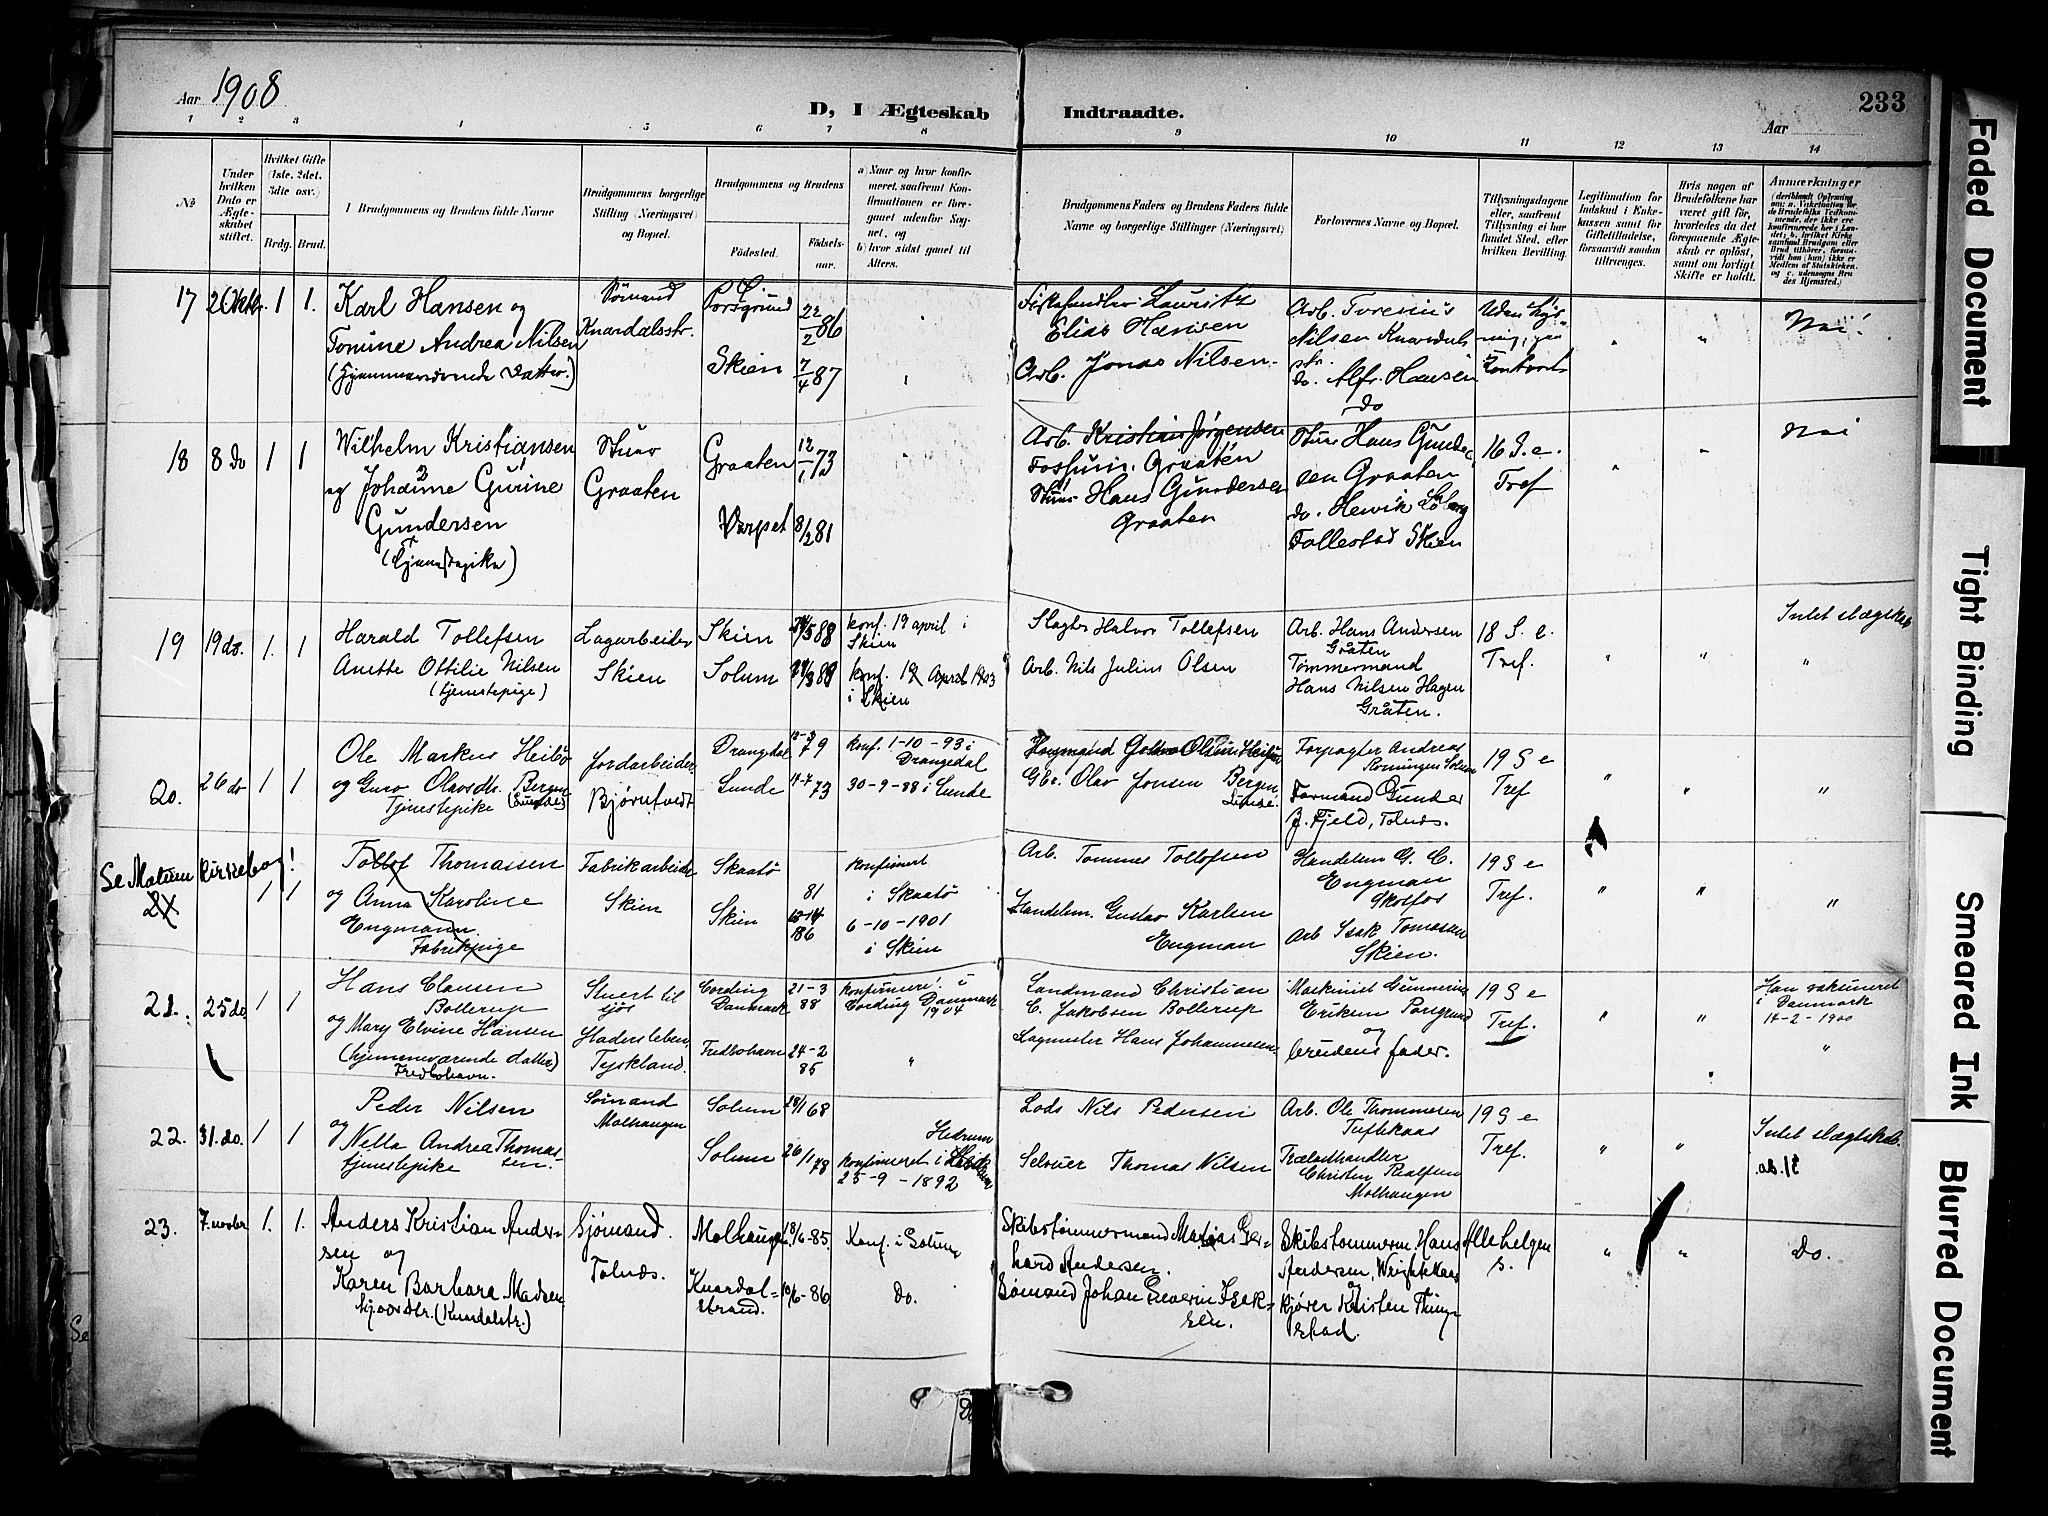 Aar 1908
D, I Ægteskab Indtraadte.
Aar
233
1 2 3 4 5 6 7 8 9 10 11 12 13 14
No
Under hvilken Dato er Ægteskabet stiftet.
Hvilket Gifte (1ste, 2det, 3die osv.)
Brdg. Brud.
I Brudgommens og Brudens fulde Navne
Brudgommens borgerlige Stilling (Næringsvei) og Bopæl.
Brudgommens og Brudens
Fødested. Fødselsaar.
a) Naar og hvor konfirmeret, saafremt Konfirmationen er foregaaet udenfor Sognet, og
b) hvor sidst gaaet til Alters.
Brudgommens Faders og Brudens Faders fulde Navne og borgerlige Stillinger (Næringsvei)
Forlovernes Navne og Bopæl.
Tillysningsdagene eller, saafremt Tillysning ei har fundet Sted, efter hvilken Bevilling.
Legitimation for Indskud i Enkekassen samt for Giftetilladelse, forsaavidt saadan tiltrænges.
Hvis nogen af Brudefolkene har været gift før, hvorledes da det foregaaende Ægteskab er opløst, samt om lovligt Skifte er holdt.
Anmærkninger
17 2 Oktbr. 1 1.
Karl Hansen og
Tomine Andrea Nilsen
(hjemmeværende Datter.)
Sømand
Knardalsstr.
Porsgrund 22/2 86
Skien 7/4 87
Fiskehandler Lauritz
Elias Hansen
Arb. Jonas Nilsen
Arb. Torenius
Nilsen Knardals
str.
do. Alfr. Hansen
do
Uden lys-
ning, paa
Kontoret
Nei!
18 8 do 1 1
Wilhelm Kristiansen
og Johanne Gurine
Gundersen
(tjenestepike)
Stuer
Graaten
Graaten 12/1 73
Værpet 8/2 81
Arb. Kristian Jørgensen
Fossum, Graaten
Stuer Hans Gundersen
Graaten
Stuer Hans Gunder
sen Graaten
do. Henrik
Follestad Skien
16 S. e.
Tref
Nei
19 19 do. 1. 1
Harald Tollefsen
Anette Ottilie Nilsen
(tjenestepige)
Lagarbeider
Skien
Skien 88
Solum 88
konf. 19 april i
Skien
konf. 19 April 1903
i Skien
Slagter Halvor Tollefsen
Arb. Nils Julius Olsen
Arb. Hans Andersen
Gråten
Tømmermand
Hans Nilsen Hagen
Gråten.
18 S. e.
Tref.
Intet slægtskap
20. 26 do 1 1
Ole Markus Heibø
og Guro Olavsdtr. Bergen
Tjenestepike (Lunde)
Jordarbeider
Bjørntvedt
Drangedal 79
Lunde 14-7 73
konf. 1-10-93 i
Drangedal
30-9-88 i Lunde
Gbr. Olav Jonsen Bergen
Lunde.
Forpagter Andreas
Rorningen Solum
Formand Gunder
J. Fjeld, Tolnæs.
19 S e
Tref
Se Melum kirkebog!
21 1 1
Tollef Thomassen
og Anna Karoline
Engmann.
Fabrikpige
Fabrikarbeider
Skien
Skaatø 81
Skien 86
konfirmert
i Skaatø
6-10-1901
i Skien
Arb. Tommes Tollefsen
Handelsm. Gustav Karlsen
Engman
Handelsm G. C.
Engman
Skotfos
Arb Isak Tomassen
Skien.
19 S e
Tref.
21. 25 do. 1 1
Hans Clausen
Bollerup
og Mary Elvine Hansen
(hjemmeværende datter)
Fredbohavn.
Stuert til
sjøs
Hadersleben,
Tyskland.
Cording
Danmark 21-3
88
Fredbohavn 24-2
85
konfirmert i
Cording Danmark
1904
Landmand Christian
C. Jakobsen Bollerup
Sagmester Hans Johannesen
Maskinist Gunnerius
Eriksen Porsgrund
og
brudens fader.
19 S e
Tref.
Han vaksineret
i Danmark
14-2-1900
22. 31. do. 1 1
Peder Nilsen
og Nella Andrea Thomas-
sen.
tjenestepike
Sømand
Molhaugen
Solum 18/1 68
Solum 26/1 78
Hedrum
konfirmeret i
25-9-1892
Lods Nils Pedersen
Selveier Thomas Nilsen
Arb. Ole Thommesen
Tuftekaas
Trælasthandler
Christen Realfsen
Molhaugen
19 S e
Tref.
Intet slægtskab.
23. 7. novbr 1. 1.
Anders Kristian Ander-
sen og
Karen Barbara Madsen
hjv. dtr. (Knardalstr.)
Sjømand.
Tolnæs.
Molhaugen 18/6-85.
Knardal-
strand. 10/6-86
Konf. i Solum
do.
Skibstømmermand Matias Ger-
hard Andersen.
Sømand Johan Severin Isak-
sen.
Skibstømmerm. Hans
Andersen, Wrightekaas
og
kjører Karsten Thing-
stad.
Allehelgen
s.
do.
Faded Document
Tight Binding
Smeared Ink
Blurred Document